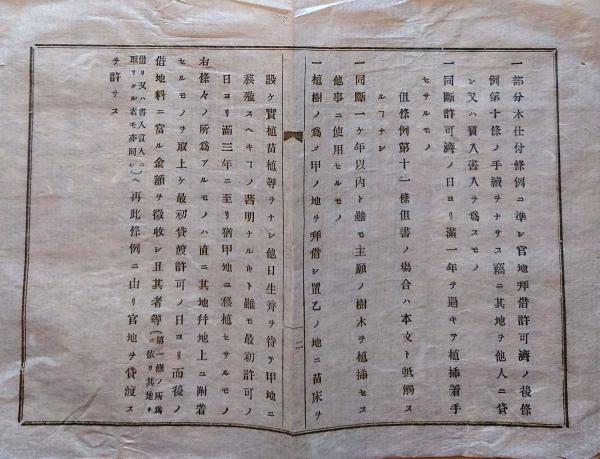 一部分木仕付條例ニ準シ官地拜借許可濟ノ後條
例第十條ノ手續ヲナサス竊ニ其地ヲ他人ニ貸
シ又ハ質入書入ヲ爲スモノ
一同斷許可濟ノ日ヨリ滿一年ヲ過キテ植挿着手
セサルモノ
但條例第十一條但書ノ塲合ハ本文ト牴觸ス
ルヿナシ
一同斷一ケ年以內ト雖モ主願ノ樹木ヲ植挿セス
他事ニ使用セルモノ
一植樹ノ爲メ甲ノ地ヲ拜借シ置乙ノ地ニ苗床ヲ
二
設ケ實植苗植等ヲナシ他日生育ヲ待テ甲地ニ
移殖スヘキヿ著明ナルモト雖モ最初許可ノ
日ヨリ滿三年ニ至リ猶甲地ニ移植セサルモノ
右條々ノ所爲アルモノハ直ニ其地幷地上ニ附着
セルモノヲ取上ケ最初貸渡許可ノ日ヨリ而後ノ
借地料ニ當ル金額ヲ徵收シ且其者等(第一條ノ所爲ニ依リ其地ヲ
借リ又ハ書入質入ニ取リタル者モ亦同シ)ヘ再此條例ニ由リ官地ヲ貸渡ス
ヲ許サス